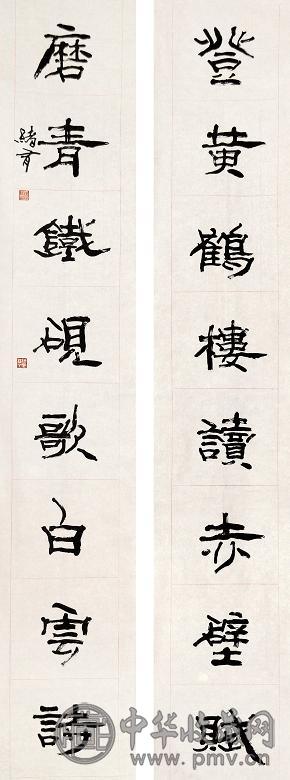 登黄鶴樓讀赤壁賦
磨青鐵硯歌白雲詩
緒方
中华收藏网
www.pmv.cn